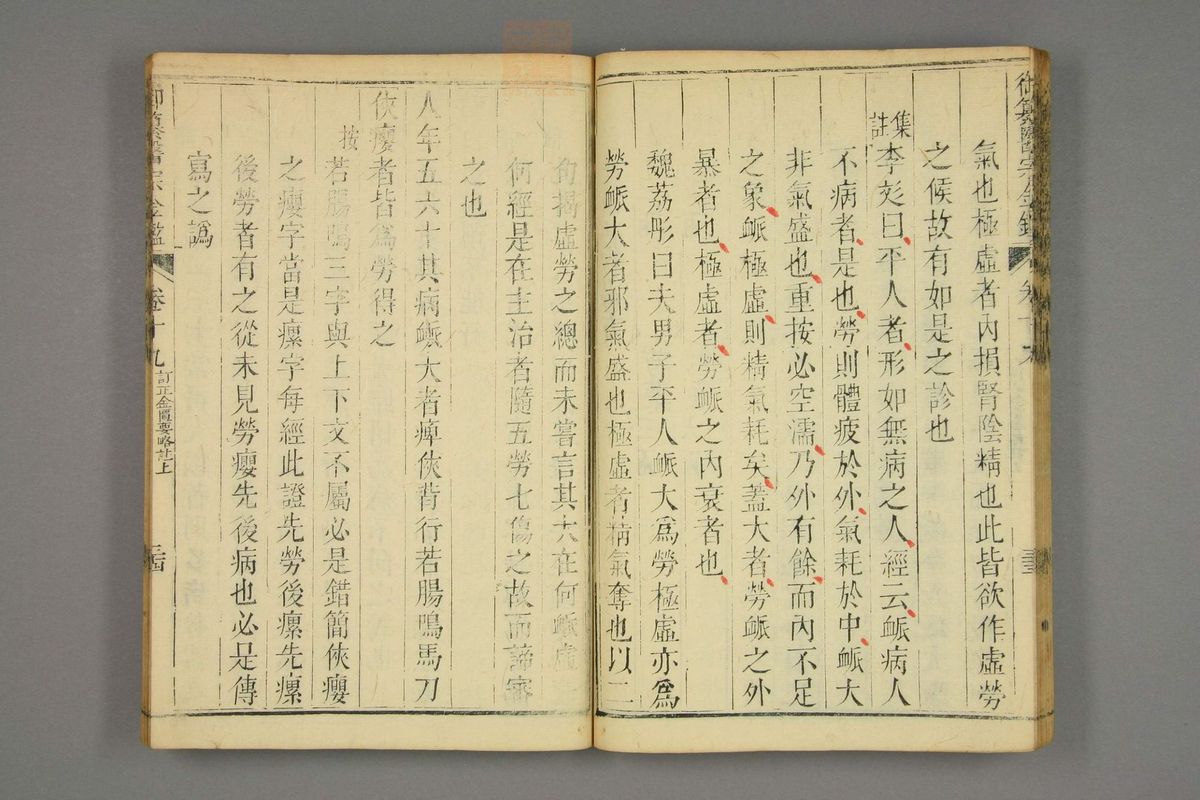 氣也極虛者內損腎陰精也此皆欲作虛勞
之候故有如是之診也
集註李彣曰平人者形如無病之人經云脈病人
不病者是也勞則體疲於外氣耗於中脈大
非氣盛也重按必空濡乃外有餘而內不足
之象脈極虛則精氣耗矣蓋大者勞脈之外
暴者也極虛者勞脈之內衰者也
魏荔彤曰夫男子平人脈大為勞極虛亦為
勞脈大者邪氣盛也極虛者精氣奪也以二
句揭虛勞之總而未嘗言其大在何脈虛
何經是在主治者隨五勞七傷之故而諦審
之也
人年五六十其病脈大者痺俠背行若腸鳴馬刀
俠癭者皆為勞得之
按若腸鳴三字與上下文不屬必是錯簡俠癭
之癭字當是瘰字每經此證先勞後瘰先瘰
後勞者有之從未見勞癭先後病也必是傳
寫之譌
御纂醫宗金鑑 卷十九 訂正金匱要略註上 三四